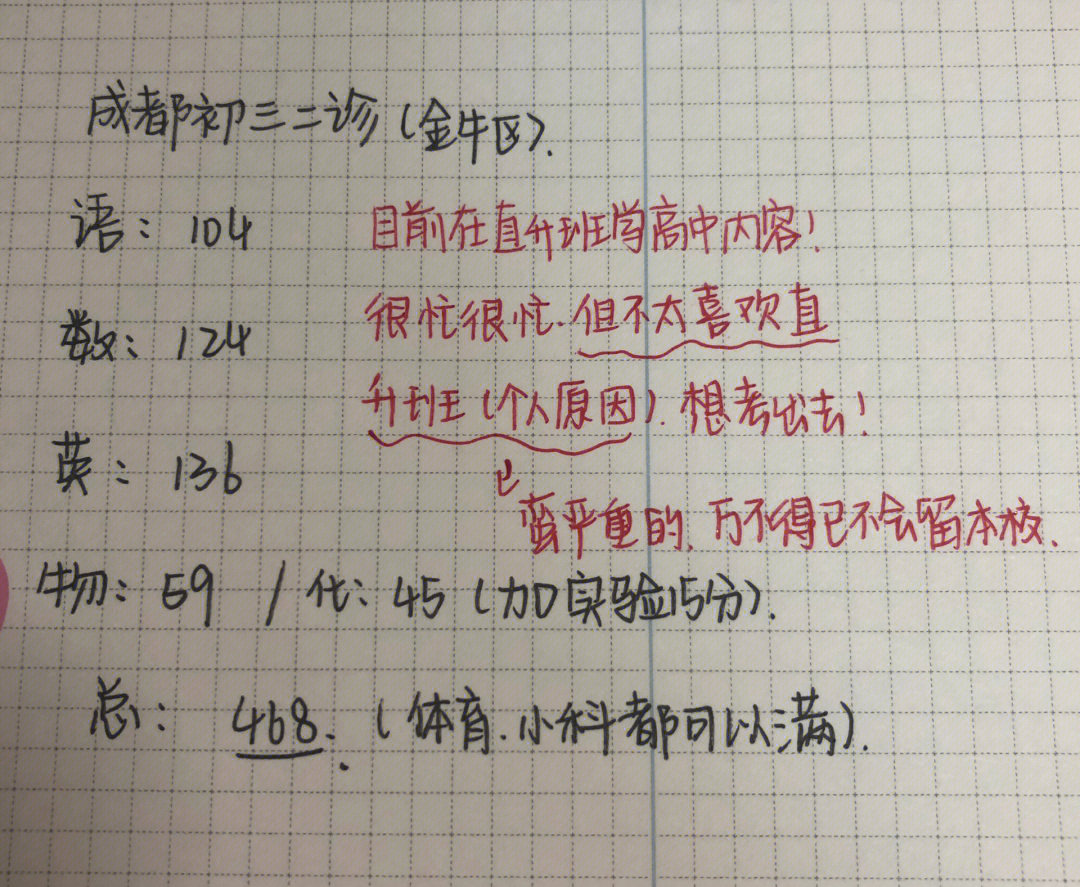 成都初三二诊(金牛区).
语: 104
目前在直升班学高中内容!
数: 124
很忙很忙.但不太喜欢直
升班(个人原因).想考出去!
英: 136
蛮严重的.万不得已不会留本校.
物: 59 / 化: 45 (加实验15分).
总: 468. (体育.小科都可以满).